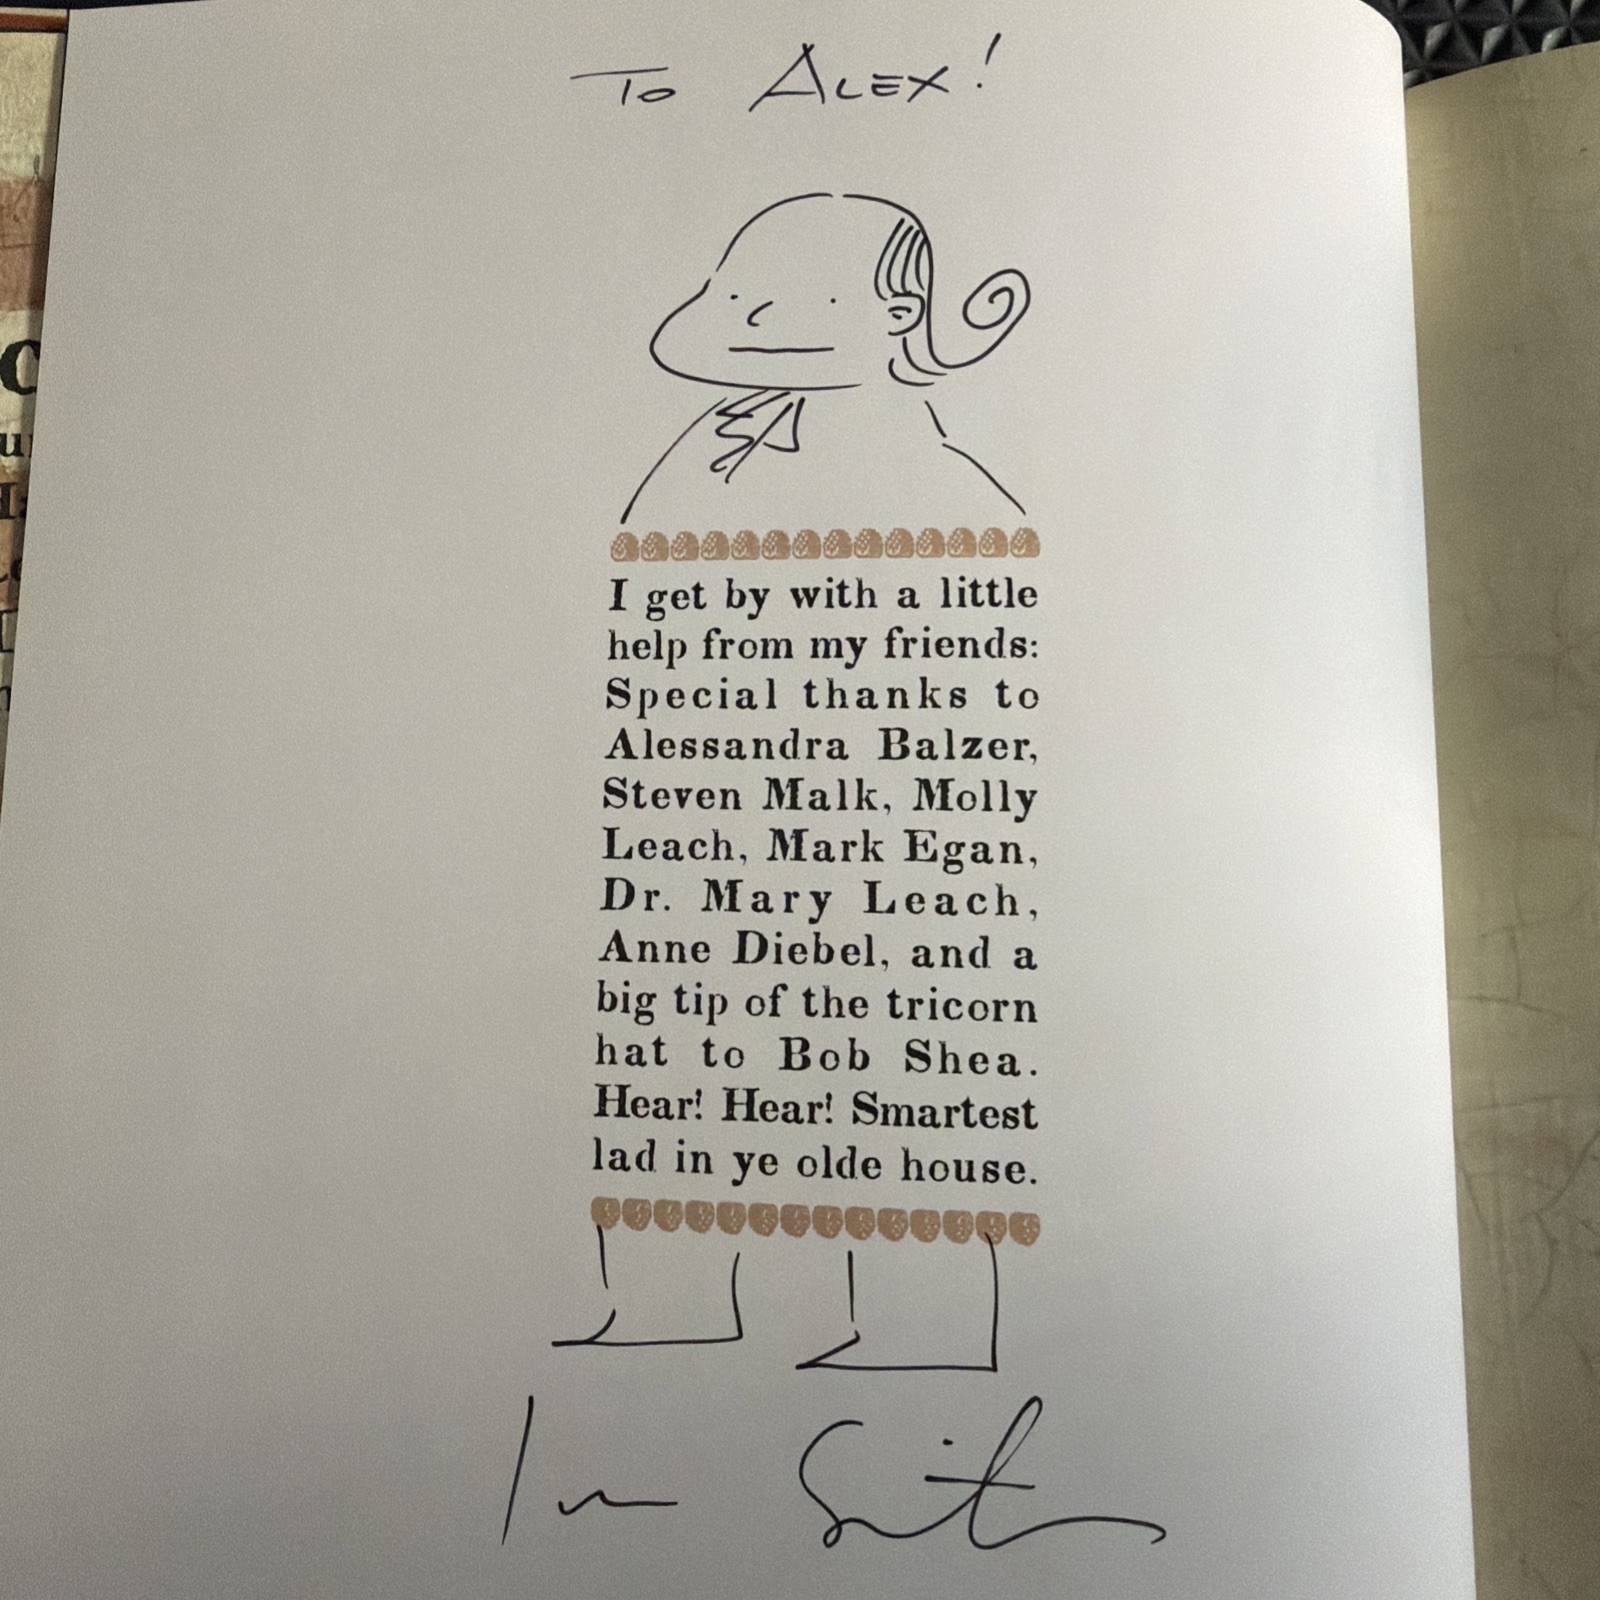 To Alex!
I get by with a little
help from my friends:
Special thanks to
Alessandra Balzer,
Steven Malk, Molly
Leach, Mark Egan,
Dr. Mary Leach,
Anne Diebel, and a
big tip of the tricorn
hat to Bob Shea.
Hear! Hear! Smartest
lad in ye olde house.